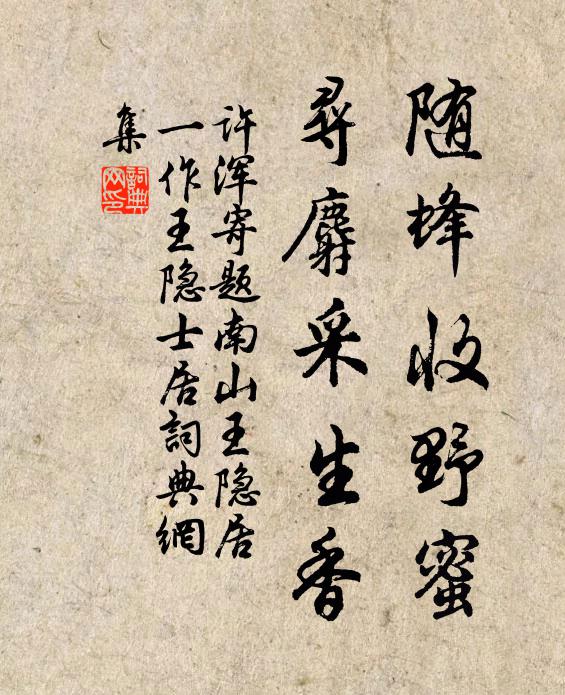 随蜂收野蜜
寻麝采生香
许浑寄题南山王隐居
一作王隐士居词典網
集
詞典
网印